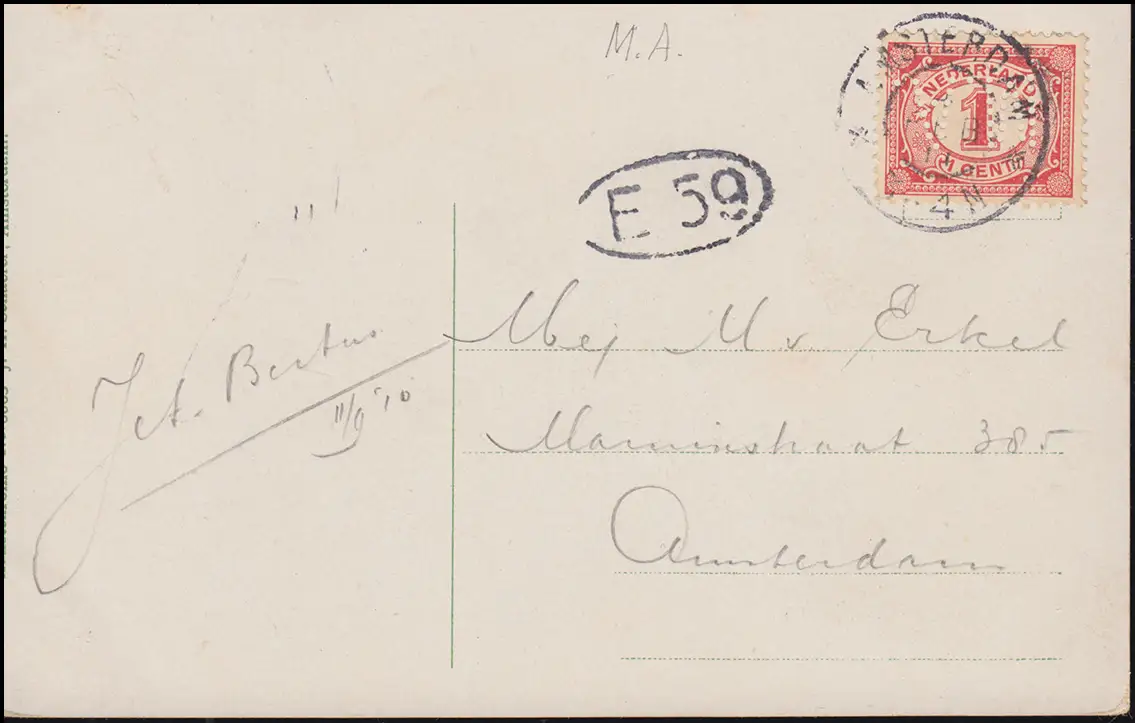 M.A.
AMSTERDAM
4 N
NEDERLAND
1
1 CENT
E 59
Mej M v Erkel
385
Amsterdam
Jet. Bertus
11/9 '10